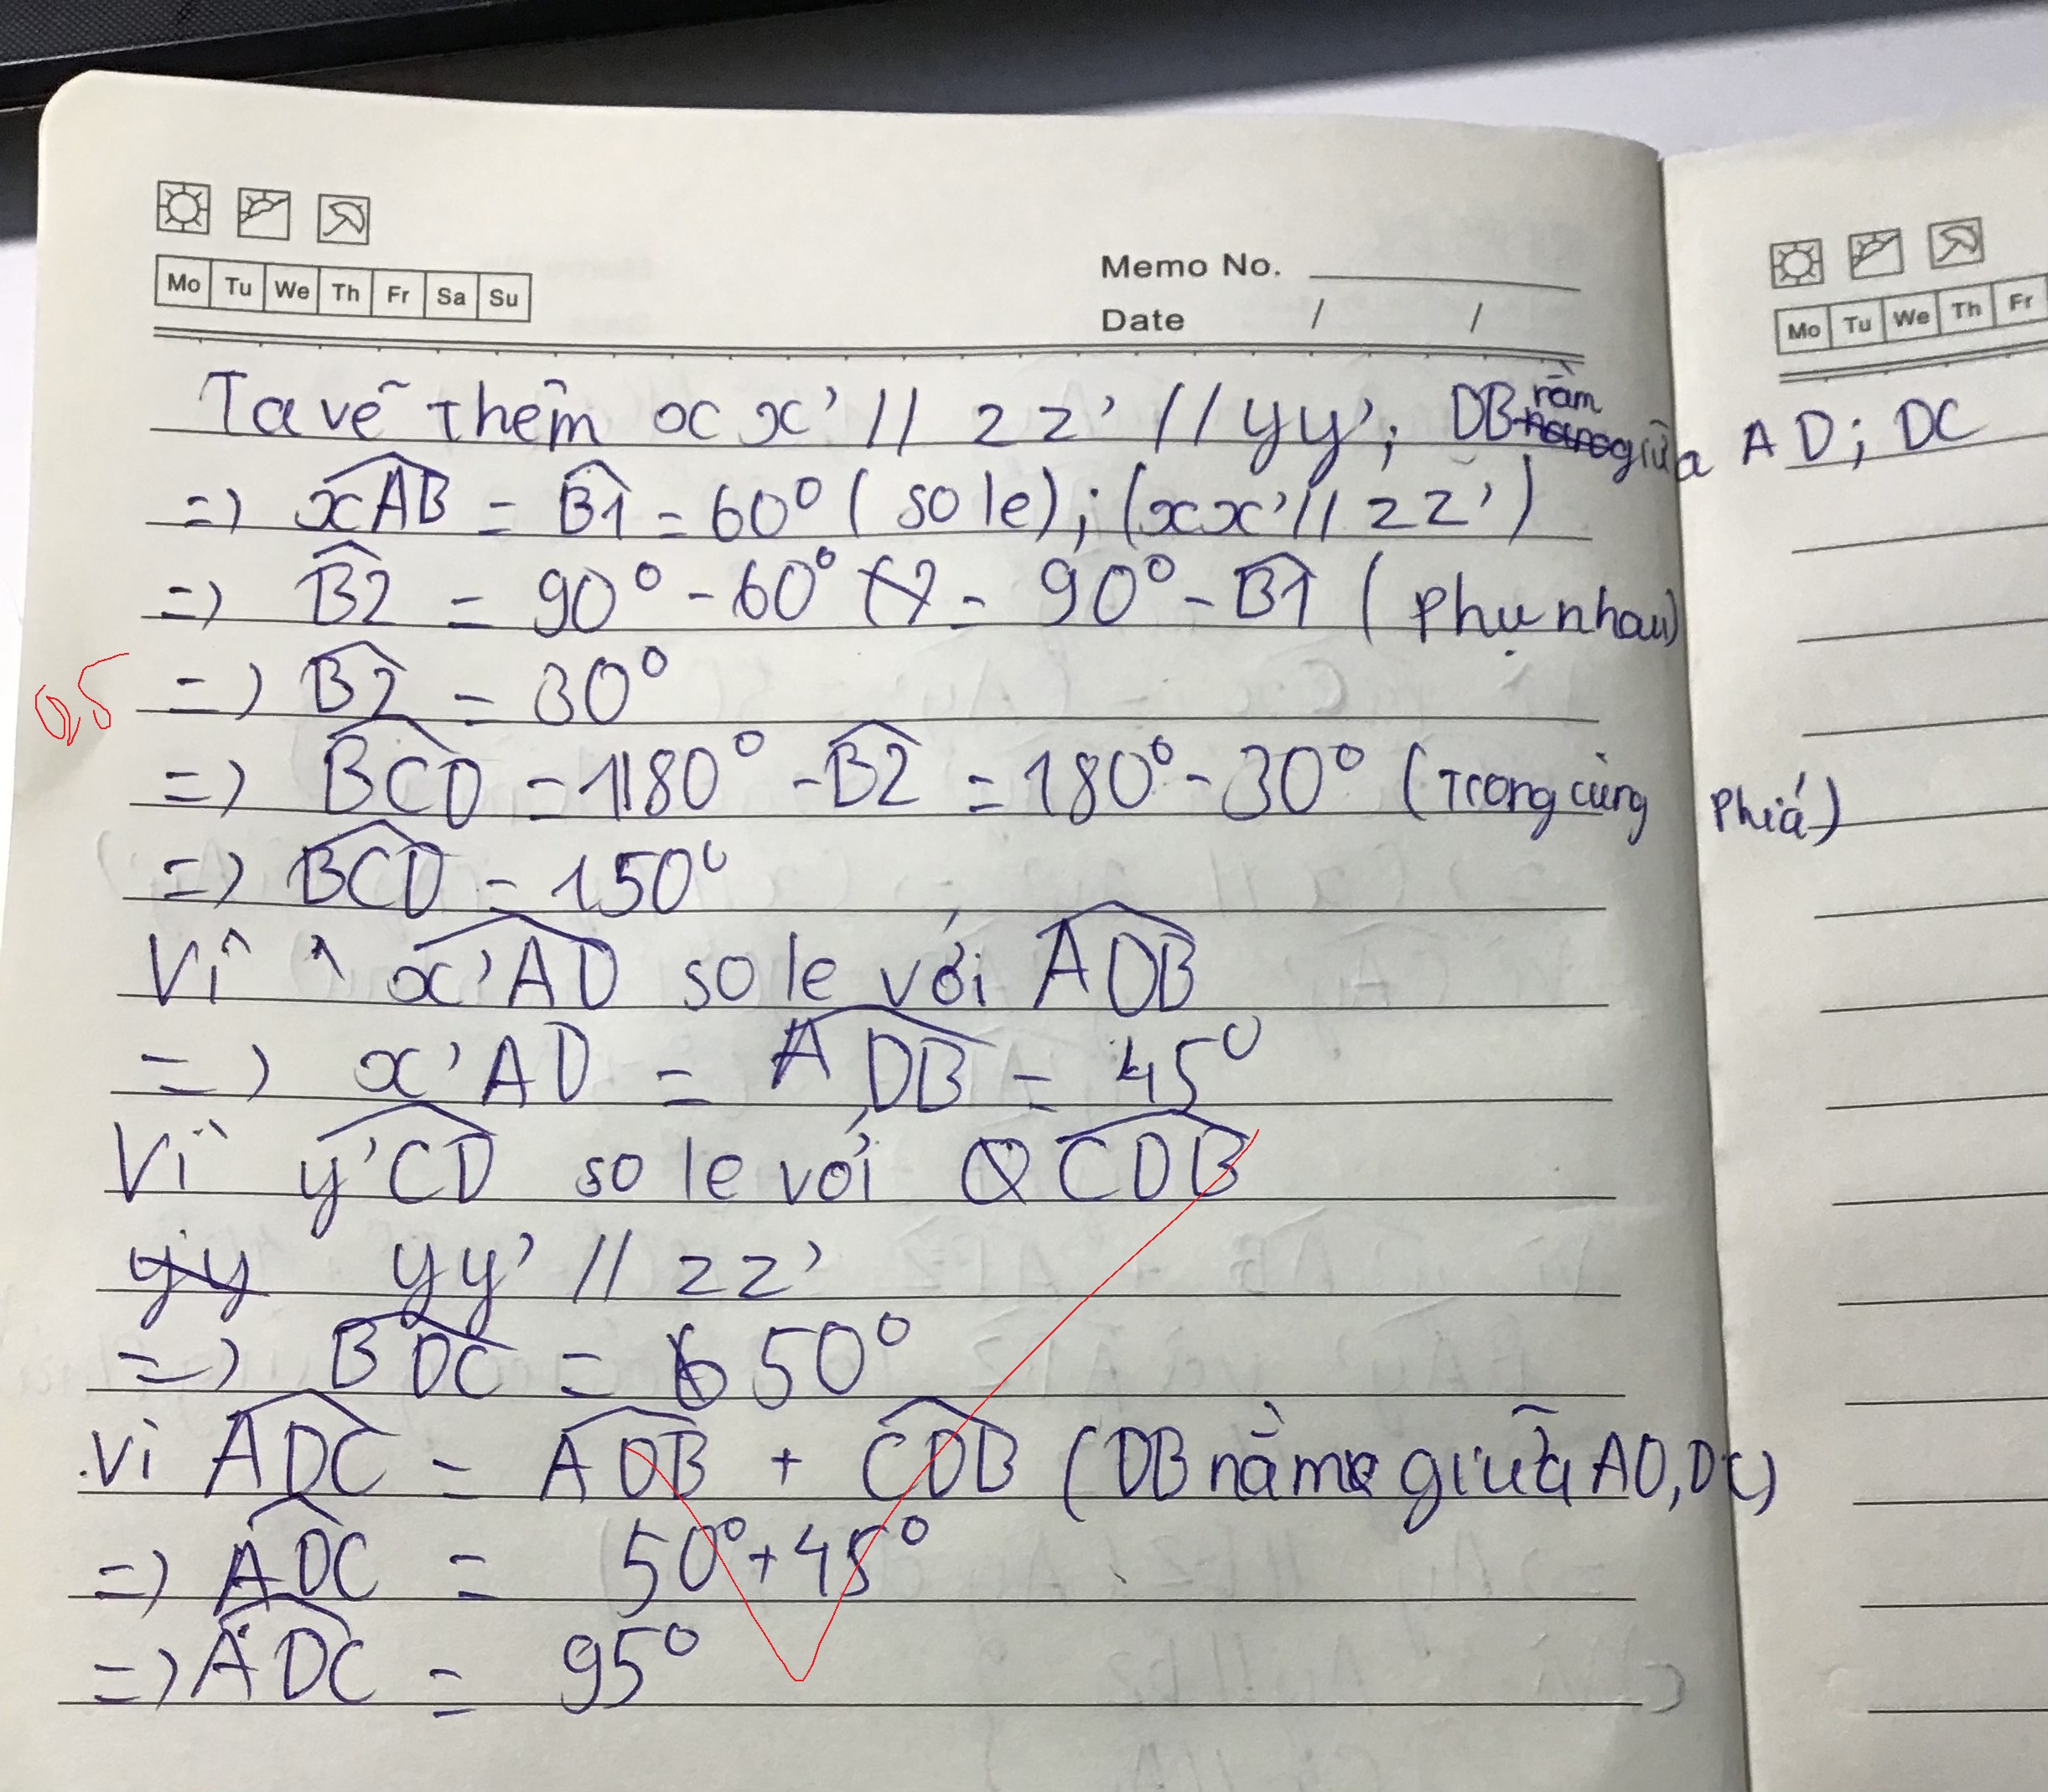 Mo Tu We Th Fr Sa Su
Memo No.
Date / /
Mo Tu We Th Fr
Ta vẽ thêm xx' // zz' // yy'; DB nằm giữa AD; DC
=) xAB = B1 = 60° (so le); (xx' // zz')
=) B2 = 90° - 60° = 90° - B1 (phụ nhau)
0,5
=) B2 = 30°
=) BCD = 180° - B2 = 180° - 30° (Trong cùng phiá)
=) BCD = 150°
Vì x'AD so le với ADB
=) x'AD = ADB = 45°
Vì y'CD so le với CDB
yy' // zz'
=) BDC = 50°
Vì ADC = ADB + CDB (DB nằm giữa AD, DC)
=) ADC = 50° + 45°
=) ADC = 95°